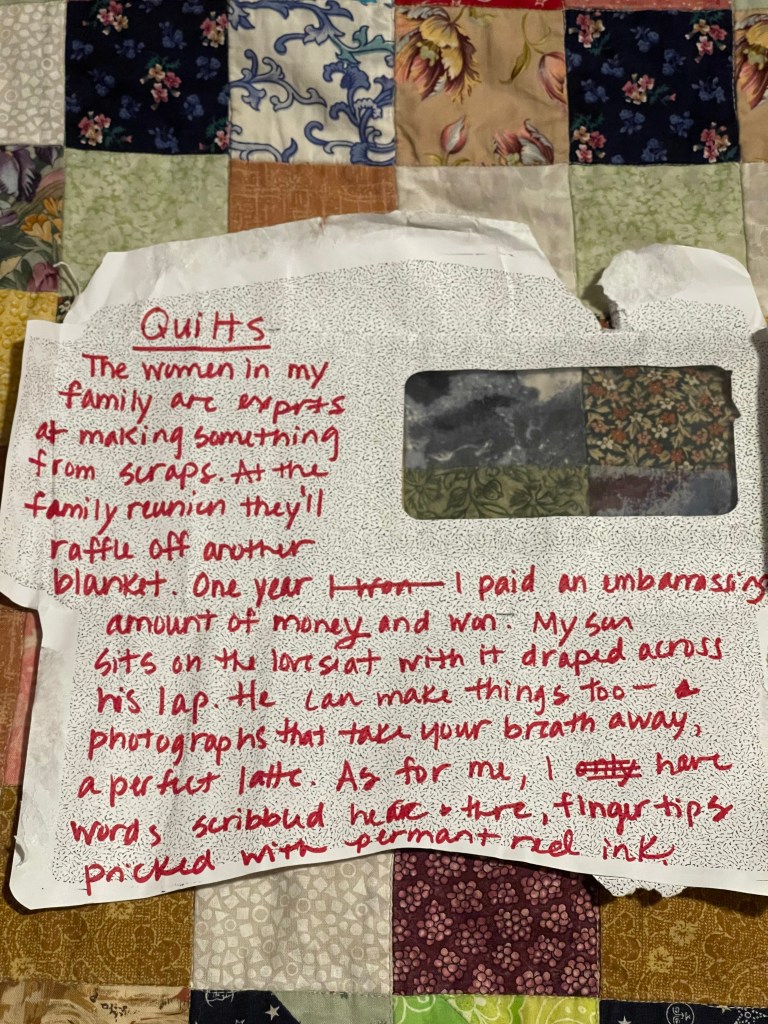 Quilts
The women in my
family are experts
at making something
from scraps. At the
family reunion they'll
raffle off another
blanket. One year I won I paid an embarrassing
amount of money and won. My son
sits on the loveseat with it draped across
his lap. He can make things too-
photographs that take your breath away,
a perfect latte. As for me, I only have
words scribbled here & there, fingertips
pricked with permant red ink.